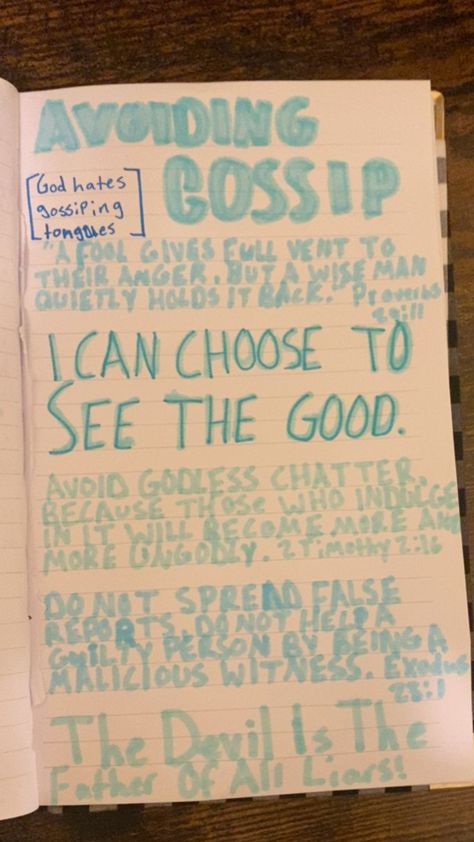 AVOIDING
GOSSIP
God hates
gossiping
tongues
"A FOOL GIVES FULL VENT TO
THEIR ANGER, BUT A WISE MAN
QUIETLY HOLDS IT BACK." Proverbs
29:11
I CAN CHOOSE TO
SEE THE GOOD.
AVOID GODLESS CHATTER,
BECAUSE THOSE WHO INDULGE
IN IT WILL BECOME MORE AND
MORE UNGODLY. 2 Timothy 2:16
DO NOT SPREAD FALSE
REPORTS. DO NOT HELP A
GUILTY PERSON BY BEING A
MALICIOUS WITNESS. Exodus
23:1
The Devil Is The
Father Of All Liars!